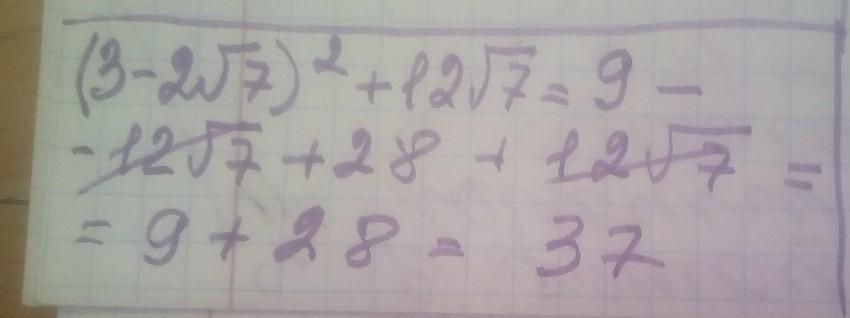 (3-2√7)² + 12√7 = 9 -
- 12√7 + 28 + 12√7 =
= 9 + 28 = 37